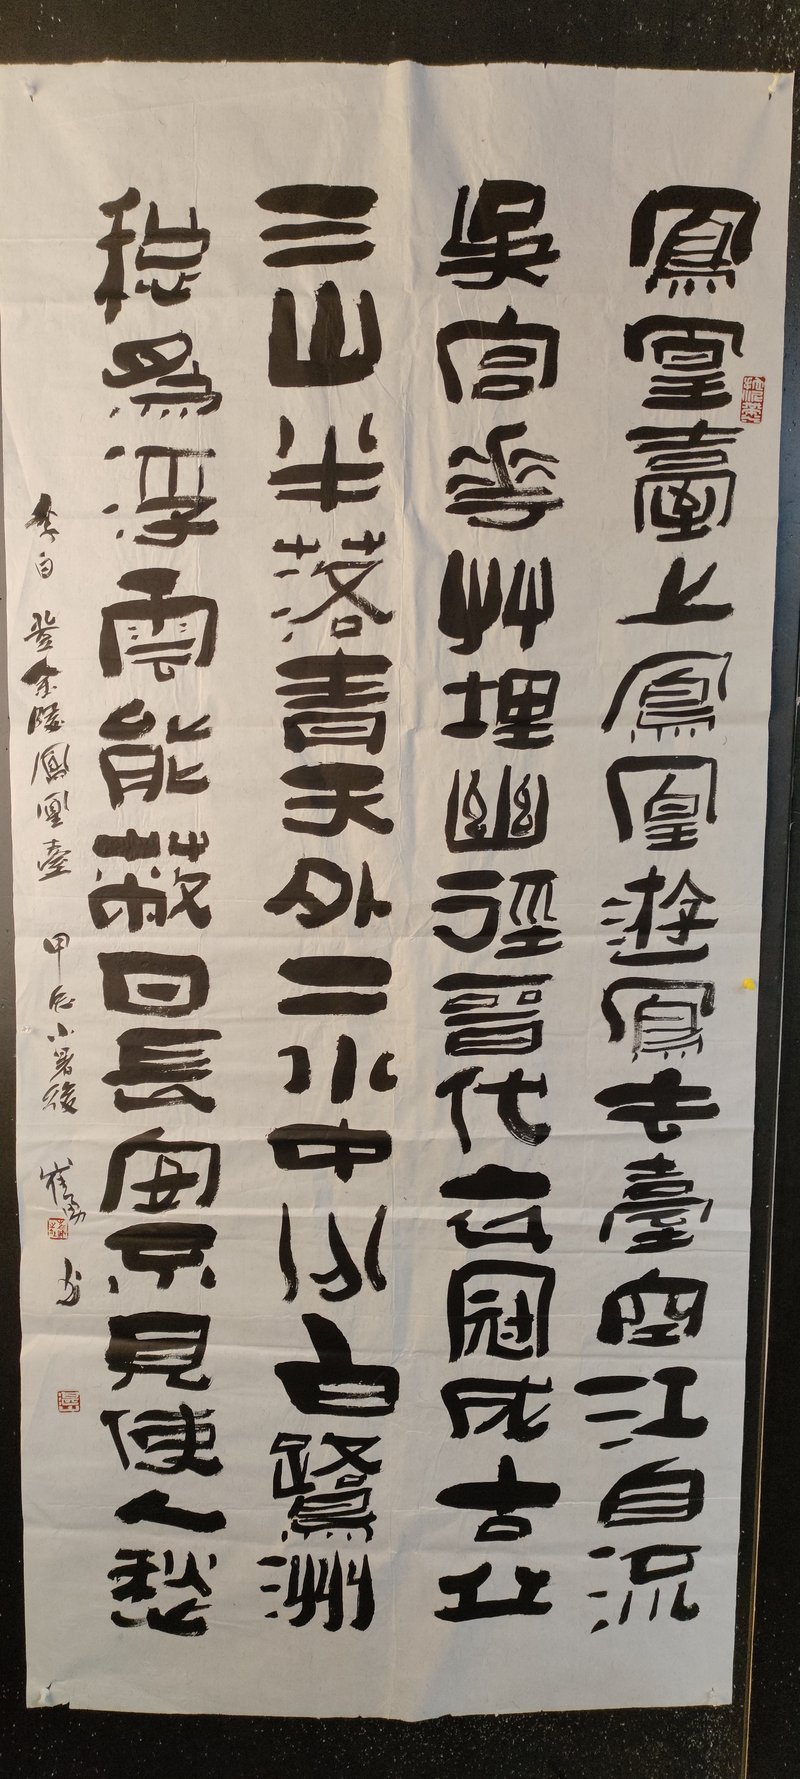 鳳凰臺上鳳凰遊鳳去臺空江自流
吳宮華艸埋幽徑晉代衣冠成古丘
三山半落青天外二水中分白鷺洲
總爲浮雲能蔽日長安不見使人愁
李白 登金陵鳳凰臺 甲辰小暑後 崔勇 书